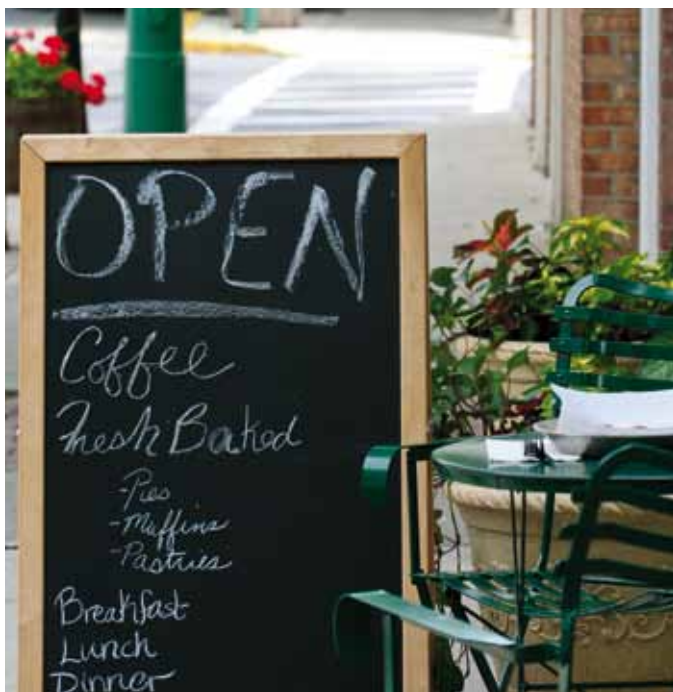 OPEN
Coffee
Fresh Baked
-Pies
-Muffins
-Pastries
Breakfast
Lunch
Dinner